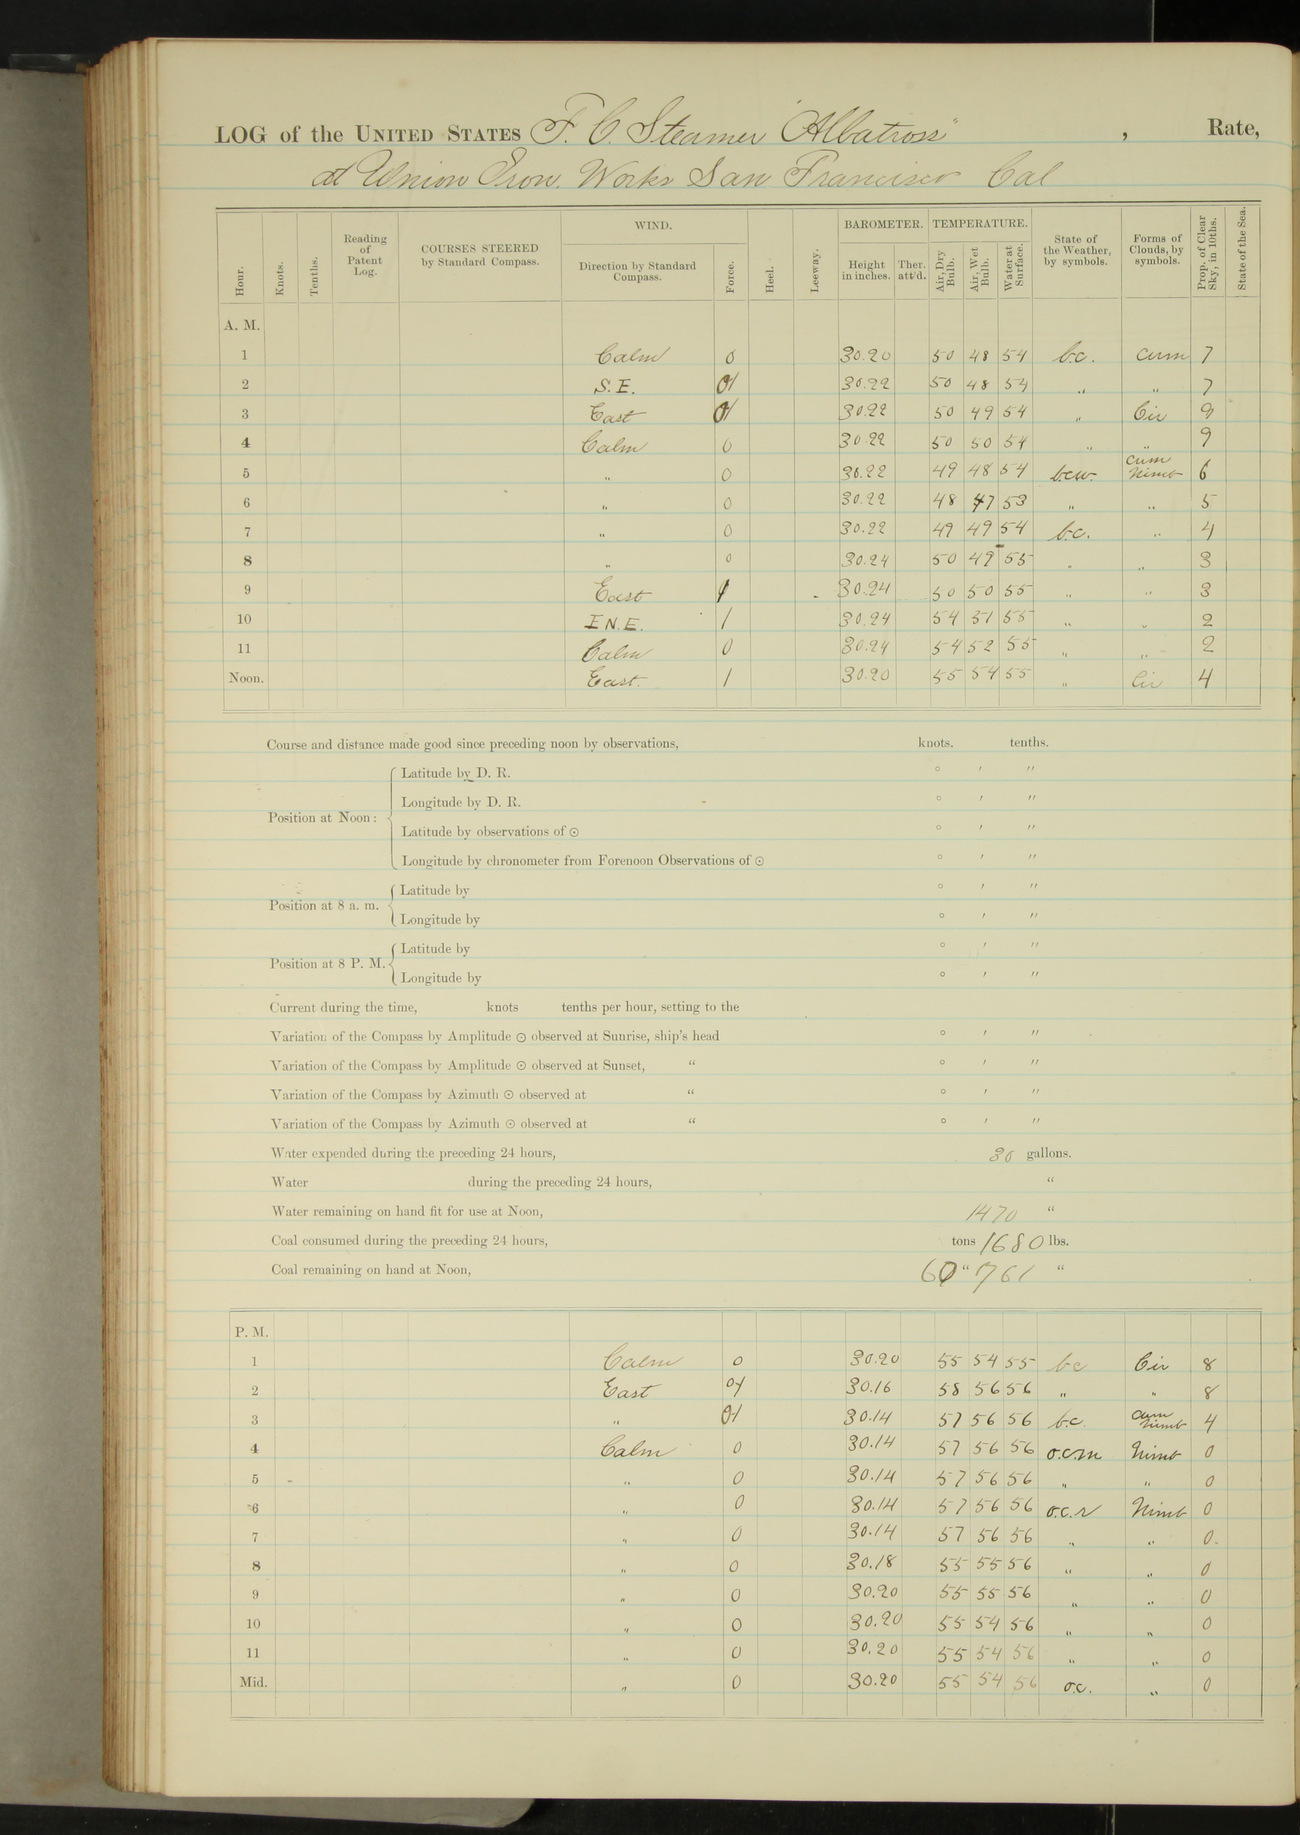 LOG of the UNITED STATES F. C. Steamer "Albatross", Rate,
at Union Iron Works San Francisco Cal
Hour. Knots. Tenths. Reading of Patent Log. COURSES STEERED by Standard Compass. WIND. Direction by Standard Compass. Force. Heel. Leeway. BAROMETER. Height in inches. Ther. att'd. TEMPERATURE. Air, Dry Bulb. Air, Wet Bulb. Water at Surface. State of the Weather, by symbols. Forms of Clouds, by symbols. Prop. of Clear Sky, in 10ths. State of the Sea.
A. M.
1 Calm 0 30.20 50 48 54 b.c. cum 7
2 S.E. 01 30.22 50 48 54 " " 7
3 East 01 30.22 50 49 54 " Cir 9
4 Calm 0 30.22 50 50 54 " " 9
5 " 0 30.22 49 48 54 b.c.w. cum Nimb 6
6 " 0 30.22 48 47 53 " " 5
7 " 0 30.22 49 49 54 b.c. " 4
8 " 0 30.24 50 49 55 " " 3
9 East 1 30.24 50 50 55 " " 3
10 E N.E. 1 30.24 54 51 55 " " 2
11 Calm 0 30.24 54 52 55 " " 2
Noon. East. 1 30.20 55 54 55 " Cir 4
Course and distance made good since preceding noon by observations, knots. tenths.
Position at Noon: Latitude by D. R. ° ′ ″
Longitude by D. R. ° ′ ″
Latitude by observations of ☉ ° ′ ″
Longitude by chronometer from Forenoon Observations of ☉ ° ′ ″
Position at 8 a. m. Latitude by ° ′ ″
Longitude by ° ′ ″
Position at 8 P. M. Latitude by ° ′ ″
Longitude by ° ′ ″
Current during the time, knots tenths per hour, setting to the
Variation of the Compass by Amplitude ☉ observed at Sunrise, ship's head ° ′ ″
Variation of the Compass by Amplitude ☉ observed at Sunset, " ° ′ ″
Variation of the Compass by Azimuth ☉ observed at " ° ′ ″
Variation of the Compass by Azimuth ☉ observed at " ° ′ ″
Water expended during the preceding 24 hours, 30 gallons.
Water during the preceding 24 hours, "
Water remaining on hand fit for use at Noon, 1470 "
Coal consumed during the preceding 24 hours, tons 1680 lbs.
Coal remaining on hand at Noon, 60 " 761 "
P. M.
1 Calm 0 30.20 55 54 55 b c Cir 8
2 East 01 30.16 58 56 56 " " 8
3 " 01 30.14 57 56 56 b.c. Cum Nimb 4
4 Calm 0 30.14 57 56 56 o.c.m Nimb 0
5 " 0 30.14 57 56 56 " " 0
6 " 0 30.14 57 56 56 o.c.r Nimb 0
7 " 0 30.14 57 56 56 " " 0.
8 " 0 30.18 55 55 56 " " 0
9 " 0 30.20 55 55 56 " " 0
10 " 0 30.20 55 54 56 " " 0
11 " 0 30.20 55 54 56 " " 0
Mid. " 0 30.20 55 54 56 o.c. " 0